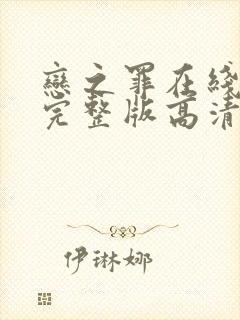 戀之罪在綫
完整版高清
伊琳娜